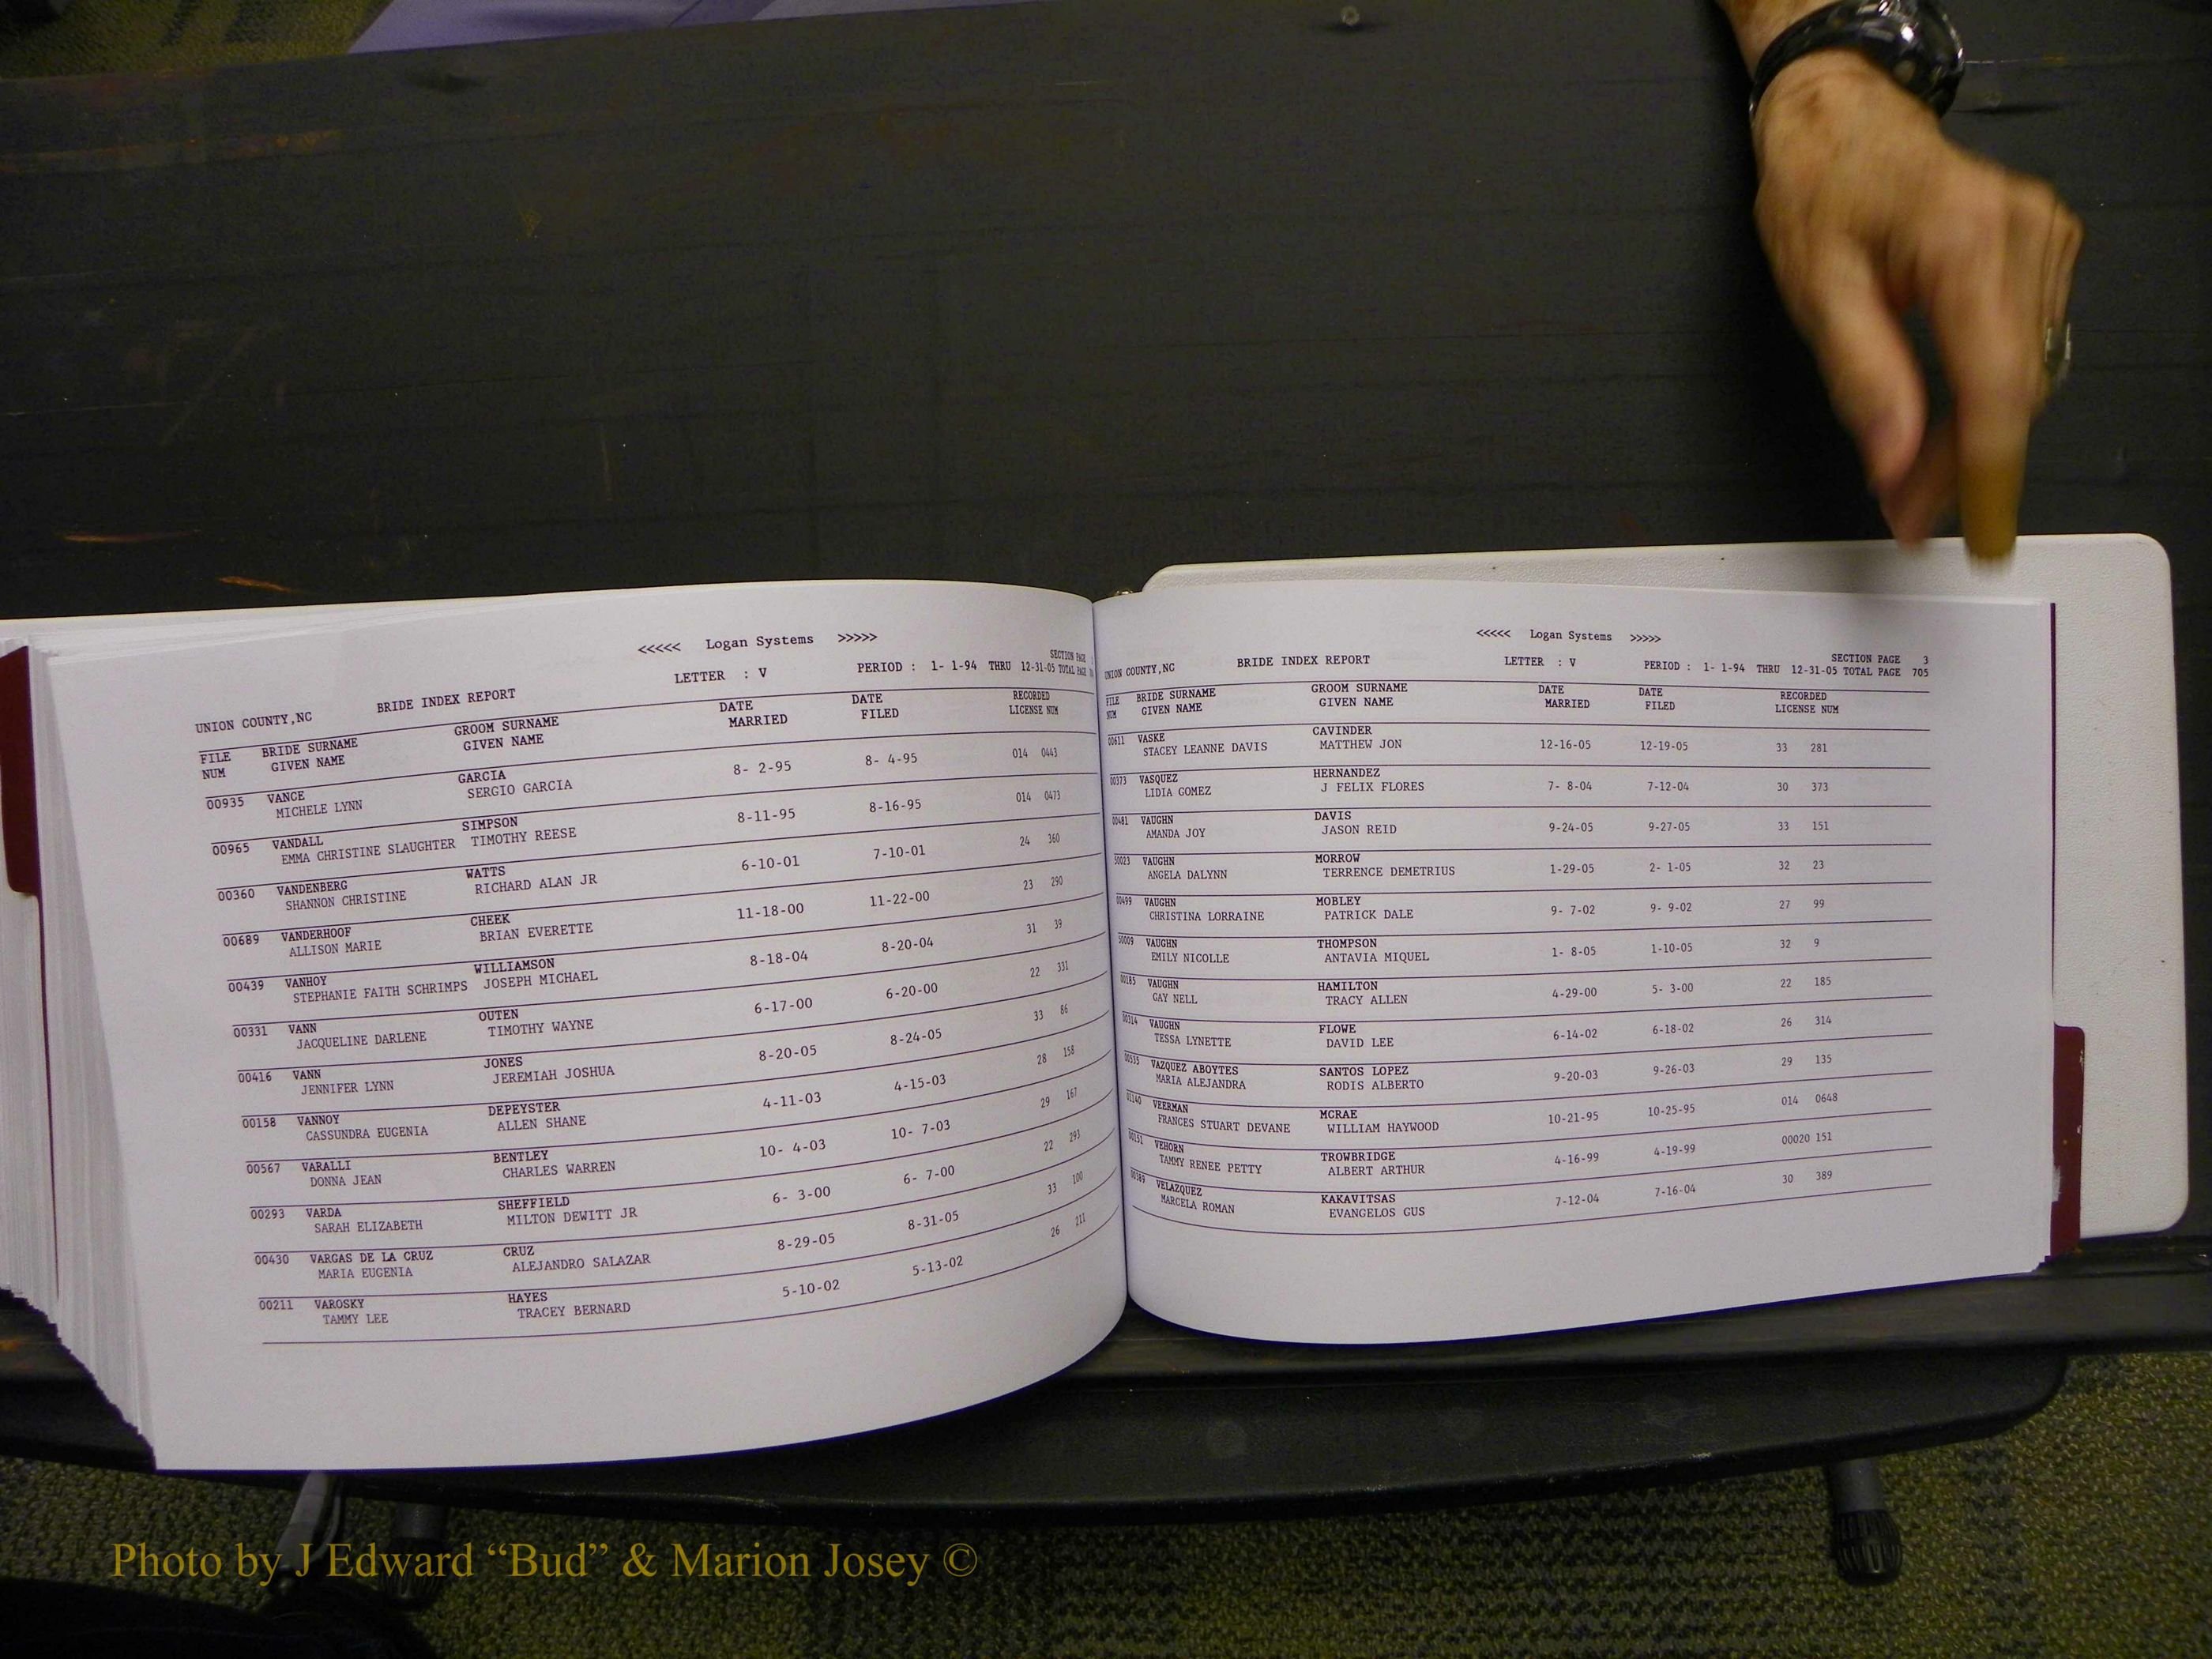 <<<<< Logan Systems >>>>>
SECTION PAGE
UNION COUNTY,NC BRIDE INDEX REPORT LETTER : V PERIOD : 1- 1-94 THRU 12-31-05 TOTAL PAGE
FILE BRIDE SURNAME GROOM SURNAME DATE DATE RECORDED
NUM GIVEN NAME GIVEN NAME MARRIED FILED LICENSE NUM
00935 VANCE GARCIA 8- 2-95 8- 4-95 014 0443
MICHELE LYNN SERGIO GARCIA
00965 VANDALL SIMPSON 8-11-95 8-16-95 014 0473
EMMA CHRISTINE SLAUGHTER TIMOTHY REESE
00360 VANDENBERG WATTS 6-10-01 7-10-01 24 360
SHANNON CHRISTINE RICHARD ALAN JR
00689 VANDERHOOF CHEEK 11-18-00 11-22-00 23 290
ALLISON MARIE BRIAN EVERETTE
00439 VANHOY WILLIAMSON 8-18-04 8-20-04 31 39
STEPHANIE FAITH SCHRIMPS JOSEPH MICHAEL
00331 VANN OUTEN 6-17-00 6-20-00 22 331
JACQUELINE DARLENE TIMOTHY WAYNE
00416 VANN JONES 8-20-05 8-24-05 33 86
JENNIFER LYNN JEREMIAH JOSHUA
00158 VANNOY DEPEYSTER 4-11-03 4-15-03 28 158
CASSUNDRA EUGENIA ALLEN SHANE
00567 VARALLI BENTLEY 10- 4-03 10- 7-03 29 167
DONNA JEAN CHARLES WARREN
00293 VARDA SHEFFIELD 6- 3-00 6- 7-00 22 293
SARAH ELIZABETH MILTON DEWITT JR
00430 VARGAS DE LA CRUZ CRUZ 8-29-05 8-31-05 33 100
MARIA EUGENIA ALEJANDRO SALAZAR
00211 VAROSKY HAYES 5-10-02 5-13-02 26 211
TAMMY LEE TRACEY BERNARD
<<<<< Logan Systems >>>>>
SECTION PAGE 3
UNION COUNTY,NC BRIDE INDEX REPORT LETTER : V PERIOD : 1- 1-94 THRU 12-31-05 TOTAL PAGE 705
FILE BRIDE SURNAME GROOM SURNAME DATE DATE RECORDED
NUM GIVEN NAME GIVEN NAME MARRIED FILED LICENSE NUM
00611 VASKE CAVINDER 12-16-05 12-19-05 33 281
STACEY LEANNE DAVIS MATTHEW JON
00373 VASQUEZ HERNANDEZ 7- 8-04 7-12-04 30 373
LIDIA GOMEZ J FELIX FLORES
00481 VAUGHN DAVIS 9-24-05 9-27-05 33 151
AMANDA JOY JASON REID
50023 VAUGHN MORROW 1-29-05 2- 1-05 32 23
ANGELA DALYNN TERRENCE DEMETRIUS
00499 VAUGHN MOBLEY 9- 7-02 9- 9-02 27 99
CHRISTINA LORRAINE PATRICK DALE
50009 VAUGHN THOMPSON 1- 8-05 1-10-05 32 9
EMILY NICOLLE ANTAVIA MIQUEL
00185 VAUGHN HAMILTON 4-29-00 5- 3-00 22 185
GAY NELL TRACY ALLEN
00314 VAUGHN FLOWE 6-14-02 6-18-02 26 314
TESSA LYNETTE DAVID LEE
00535 VAZQUEZ ABOYTES SANTOS LOPEZ 9-20-03 9-26-03 29 135
MARIA ALEJANDRA RODIS ALBERTO
01140 VEERMAN MCRAE 10-21-95 10-25-95 014 0648
FRANCES STUART DEVANE WILLIAM HAYWOOD
00151 VEHORN TROWBRIDGE 4-16-99 4-19-99 00020 151
TAMMY RENEE PETTY ALBERT ARTHUR
00389 VELAZQUEZ KAKAVITSAS 7-12-04 7-16-04 30 389
MARCELA ROMAN EVANGELOS GUS
Photo by J Edward “Bud” & Marion Josey ©